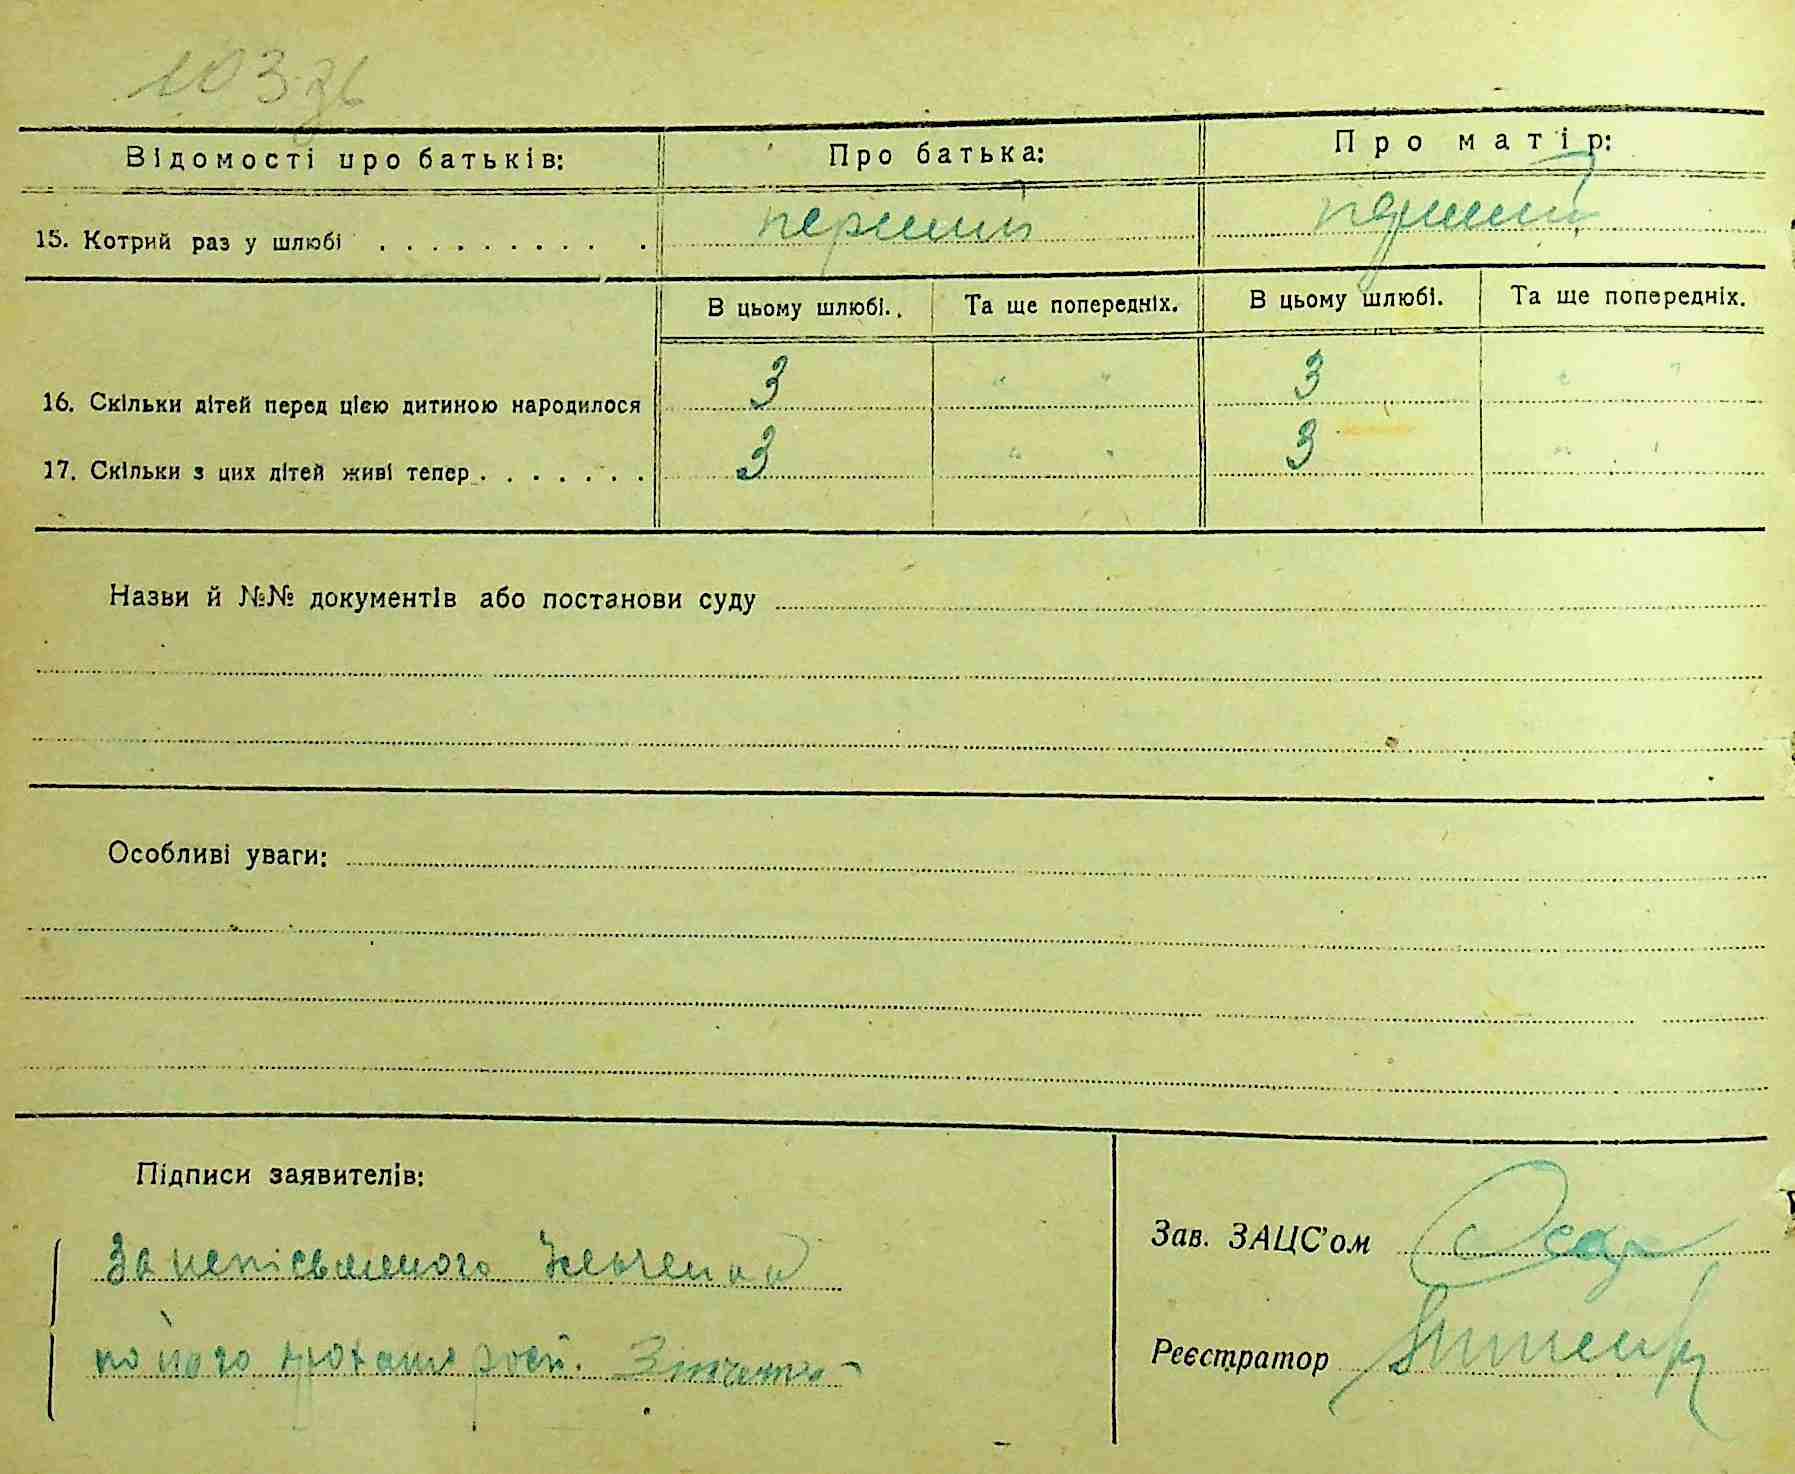 103 зв
Відомості про батьків: Про батька: Про матір:
15. Котрий раз у шлюбі . . . . . . . . . . перший перший
В цьому шлюбі. Та ще попередніх. В цьому шлюбі. Та ще попередніх.
16. Скільки дітей перед цією дитиною народилося 3 " " 3 " "
17. Скільки з цих дітей живі тепер . . . . . . . 3 " " 3 " "
Назви й №№ документів або постанови суду
Особливі уваги:
Підписи заявителів:
За неписьменного
по його
Зав. ЗАЦС'ом
Реєстратор